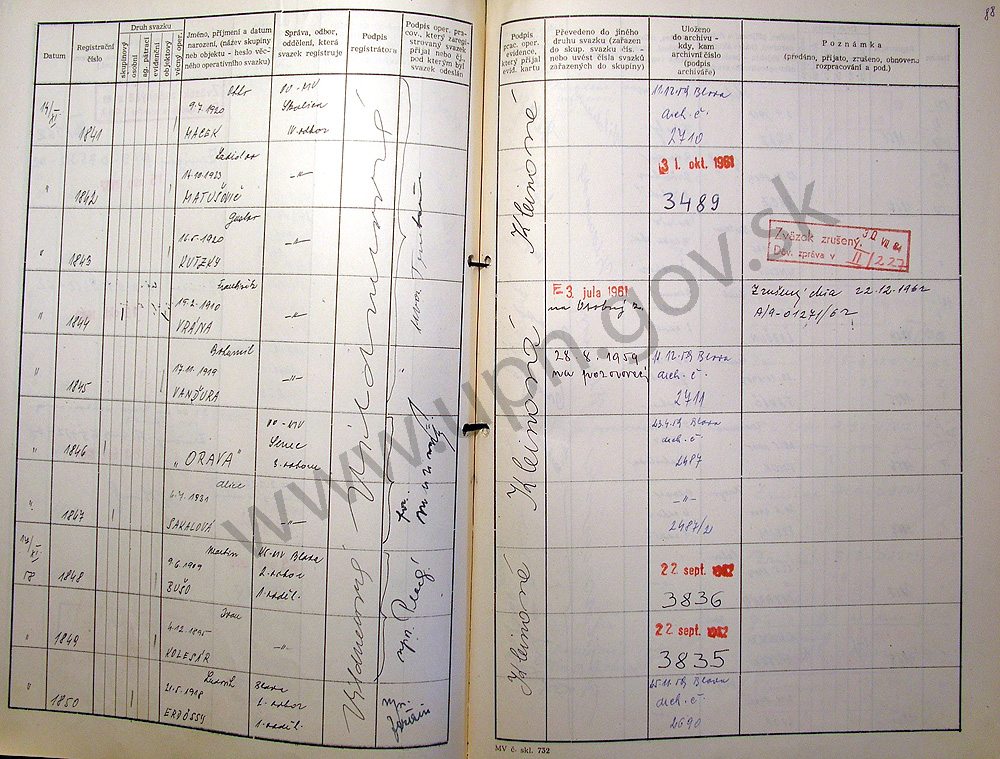 88
Datum
Registrační číslo
Druh svazku
skupinový
osobní
ag. pátrací
evidenční
objektový
věcný oper.
Jméno, příjmení a datum
narození, (název skupiny
neb objektu - heslo věc-
ného operativního svazku)
Správa, odbor,
oddělení, která
svazek registruje
Podpis
registrátora
Podpis oper. pra-
cov., který zareg-
struvaný svazek
převzal nebo čj.
pod kterým byl
svazek odeslán
Podpis
prac. oper.
evidence,
který přijal
evid. kartu
Převedeno do jiného
druhu svazku (zařazen
do skup. svazku čís. -
nebo uvést čísla svazků
zařazených do skupiny)
Uloženo
do archivu -
kdy, kam
archivní číslo
(podpis
archiváře)
Poznámka
(předáno, přijato, zrušeno, obnoveno
rozpracování a pod.)
1841
9.7.1920
MACEK
OO-MV
Skalica
IV. odbor
11.12.59 Blava
arch. č.
2710
" 1842
Ladislav
17.10.1923
MATUŠOVIČ
-"-
31. okt. 1961
3489
" 1843
Gustav
16.5.1920
KUTZKY
-"-
Zväzok zrušený
Dov. zpráva v II/227
" 1844
19.2.1910
VRÁNA
-3. júla 1961
na Osobný z.
Zrušený dňa 22.12.1962
A/9-01271/62
" 1845
Bohumil
17.11.1919
VANĎURA
-"-
28.8.1959
na pozorovací
11.12.59 Blava
arch. č.
2711
" 1846
„ORAVA"
OO-MV
Senec
23.4.59 Blava
arch. č.
2487
" 1847
Alice
6.4.1931
SAKALOVÁ
-"-
-"-
2487/2
1848
Martin
9.6.1909
BUŠO
KS-MV Blava
2. odbor
1. oddel.
22 sept. 1962
3836
" 1849
Ivan
4.12.1895
KOLESÁR
-"-
22 sept. 1962
3835
" 1850
Ľudovít
21.5.1918
ERDÖSSY
Blava
2. odbor
1. oddel.
25.11.59 Blava
arch. č.
2690
Kleinová
Kleinová
Kleinová
www.upn.gov.sk
MV č. skl. 752